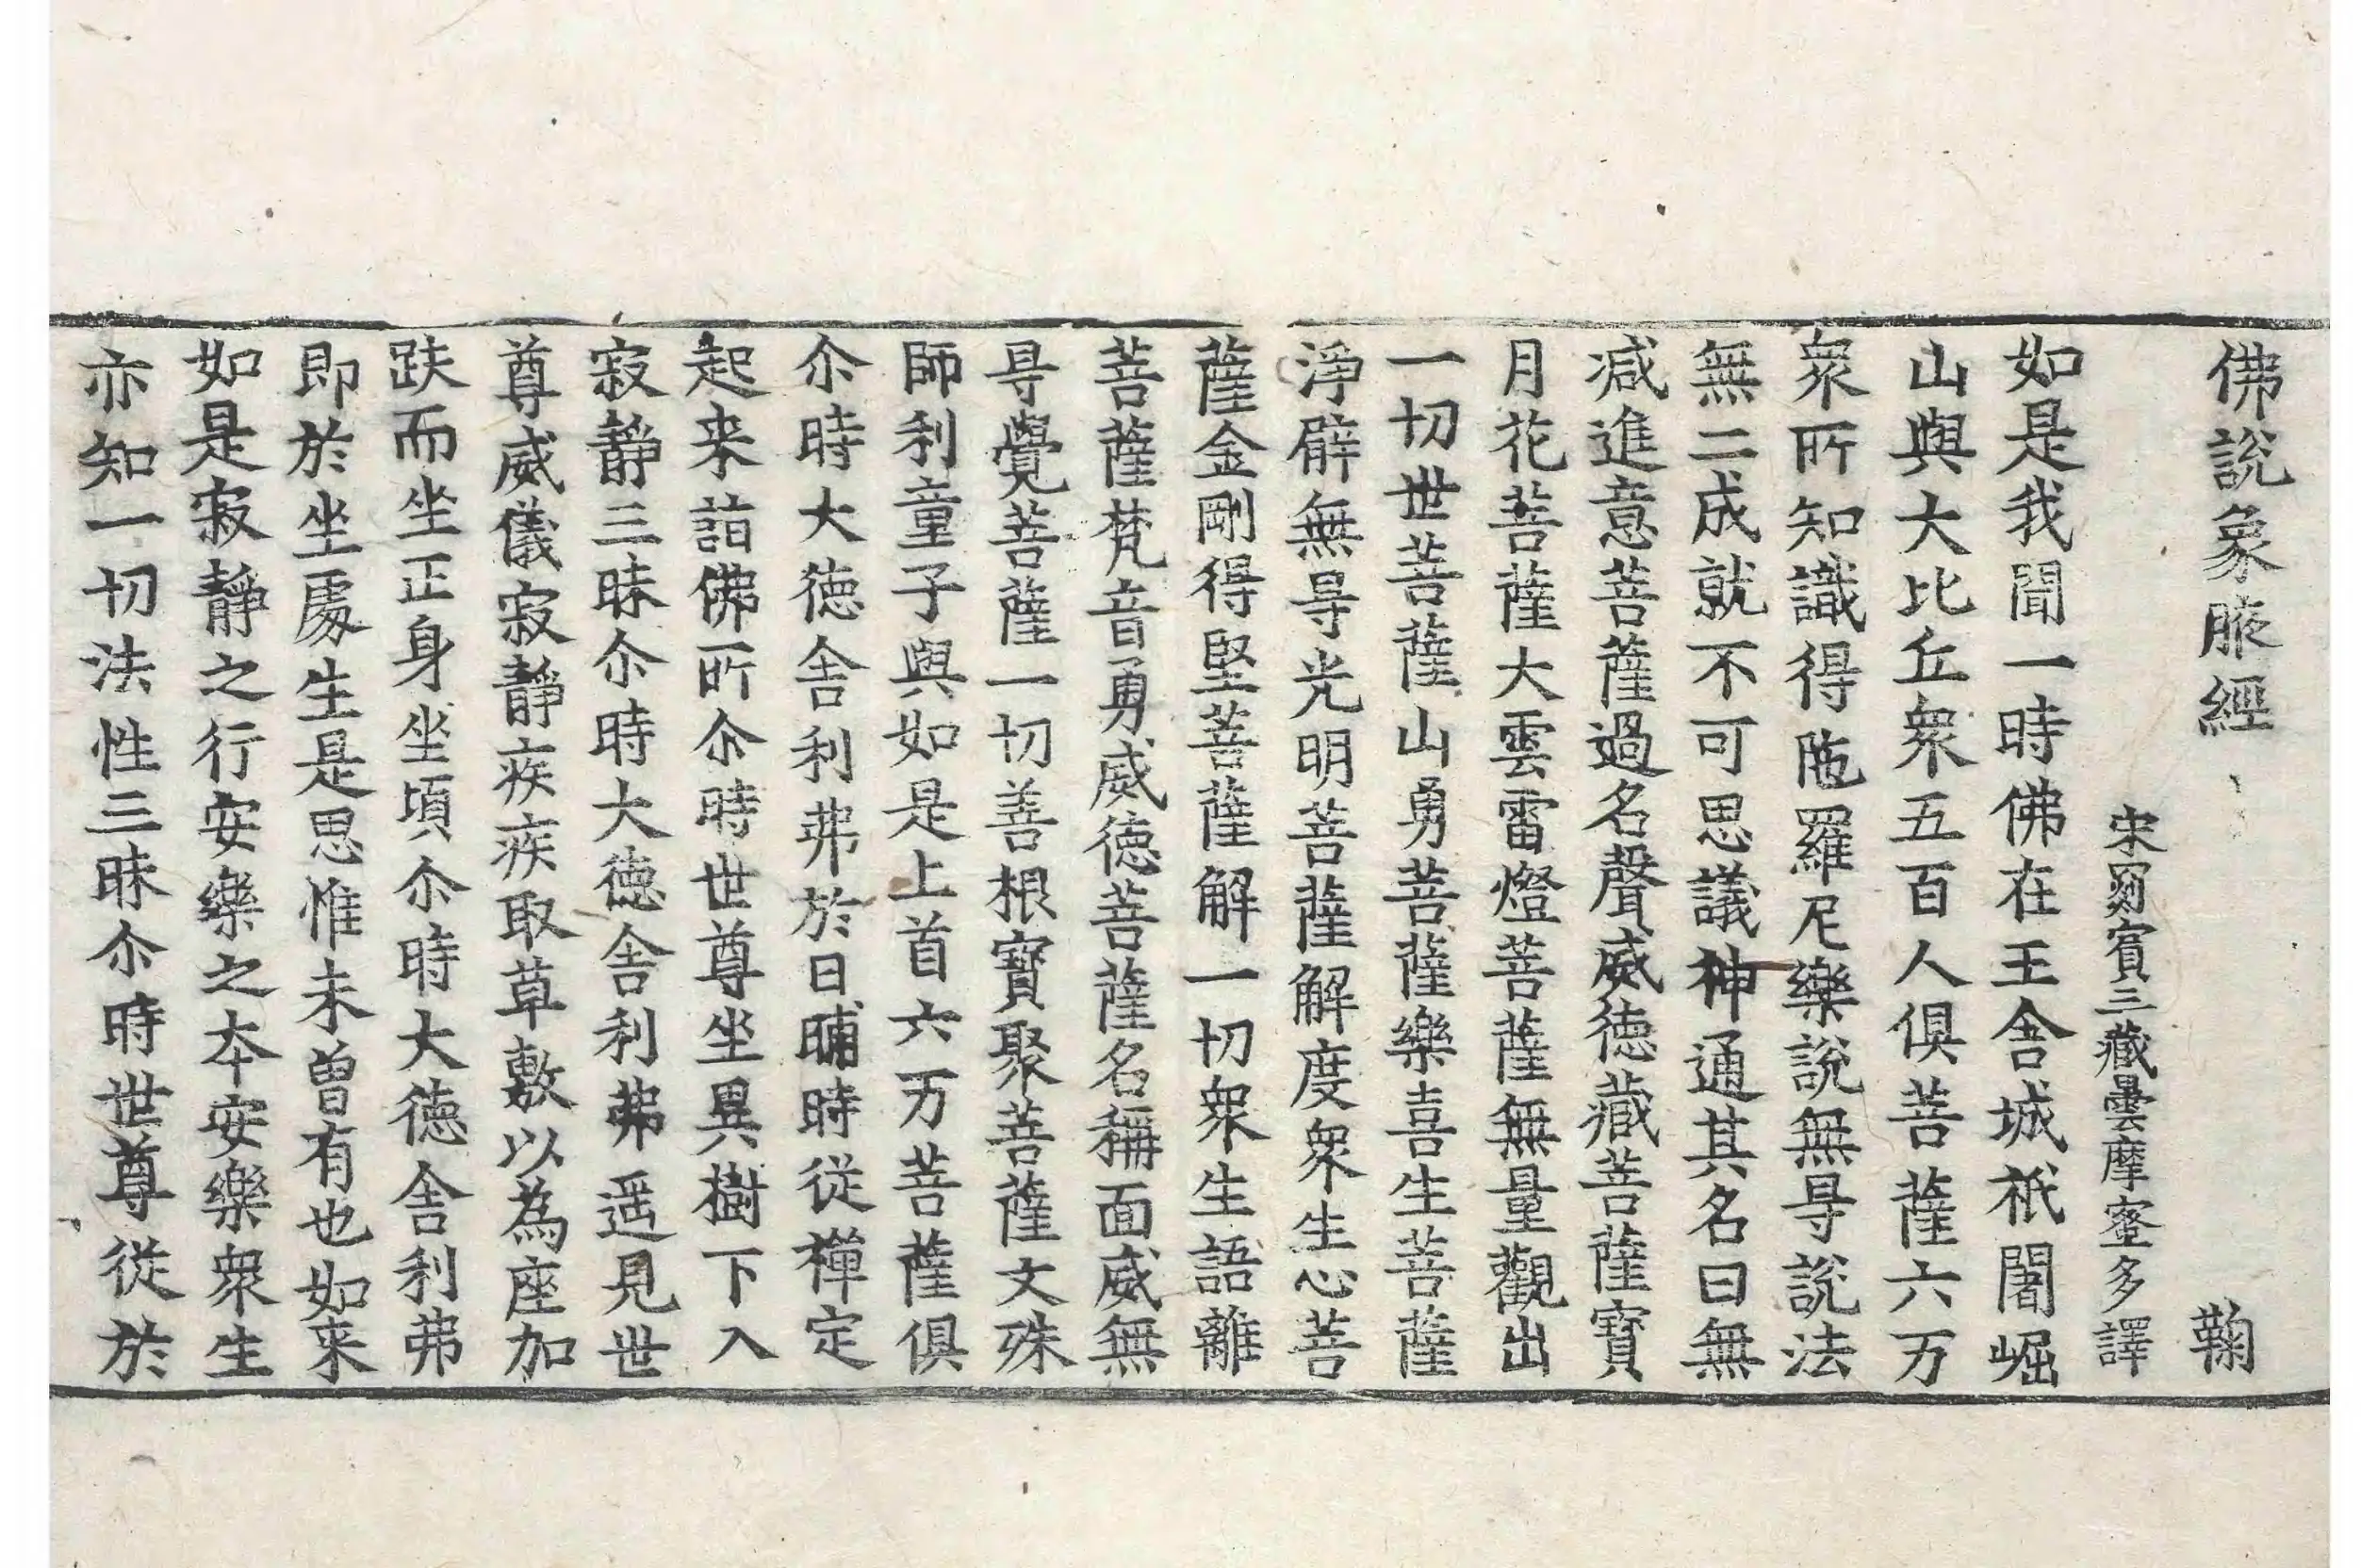 佛說象腋經 鞠
宋罽賓三藏曇摩蜜多譯
如是我聞一時佛在王舍城祇闍崛
山與大比丘衆五百人俱菩薩六万
衆所知識得陁羅尼樂說無㝵說法
無二成就不可思議神通其名曰無
减進意菩薩過名聲威德藏菩薩寶
月花菩薩大雲雷燈菩薩無量觀出
一切世菩薩山勇菩薩樂喜生菩薩
淨辟無㝵光明菩薩解度衆生心菩
薩金剛得堅菩薩解一切衆生語離
菩薩梵音勇威德菩薩名稱面威無
㝵覺菩薩一切善根寶聚菩薩文殊
師利童子與如是上首六万菩薩俱
尒時大德舍利弗於日晡時從禪定
起来詣佛所尒時世尊坐異樹下入
寂靜三昧尒時大德舍利弗遥見世
尊威儀寂靜疾疾取草敷以為座加
趺而坐正身坐頃尒時大德舍利弗
即於坐處生是思惟未曾有也如来
如是寂靜之行安樂之本安樂衆生
亦知一切法性三昧尒時世尊從於